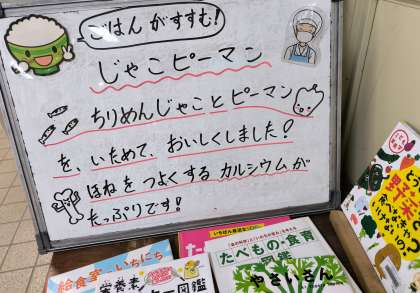 ごはんがすすむ!
じゃこピーマン
ちりめんじゃことピーマン
を、いためて、おいしくしました!
ほねをつよくするカルシウムが
たっぷりです!
給食室のいちにち
栄養素
図鑑
たべもの・食育
図鑑
やさいさん